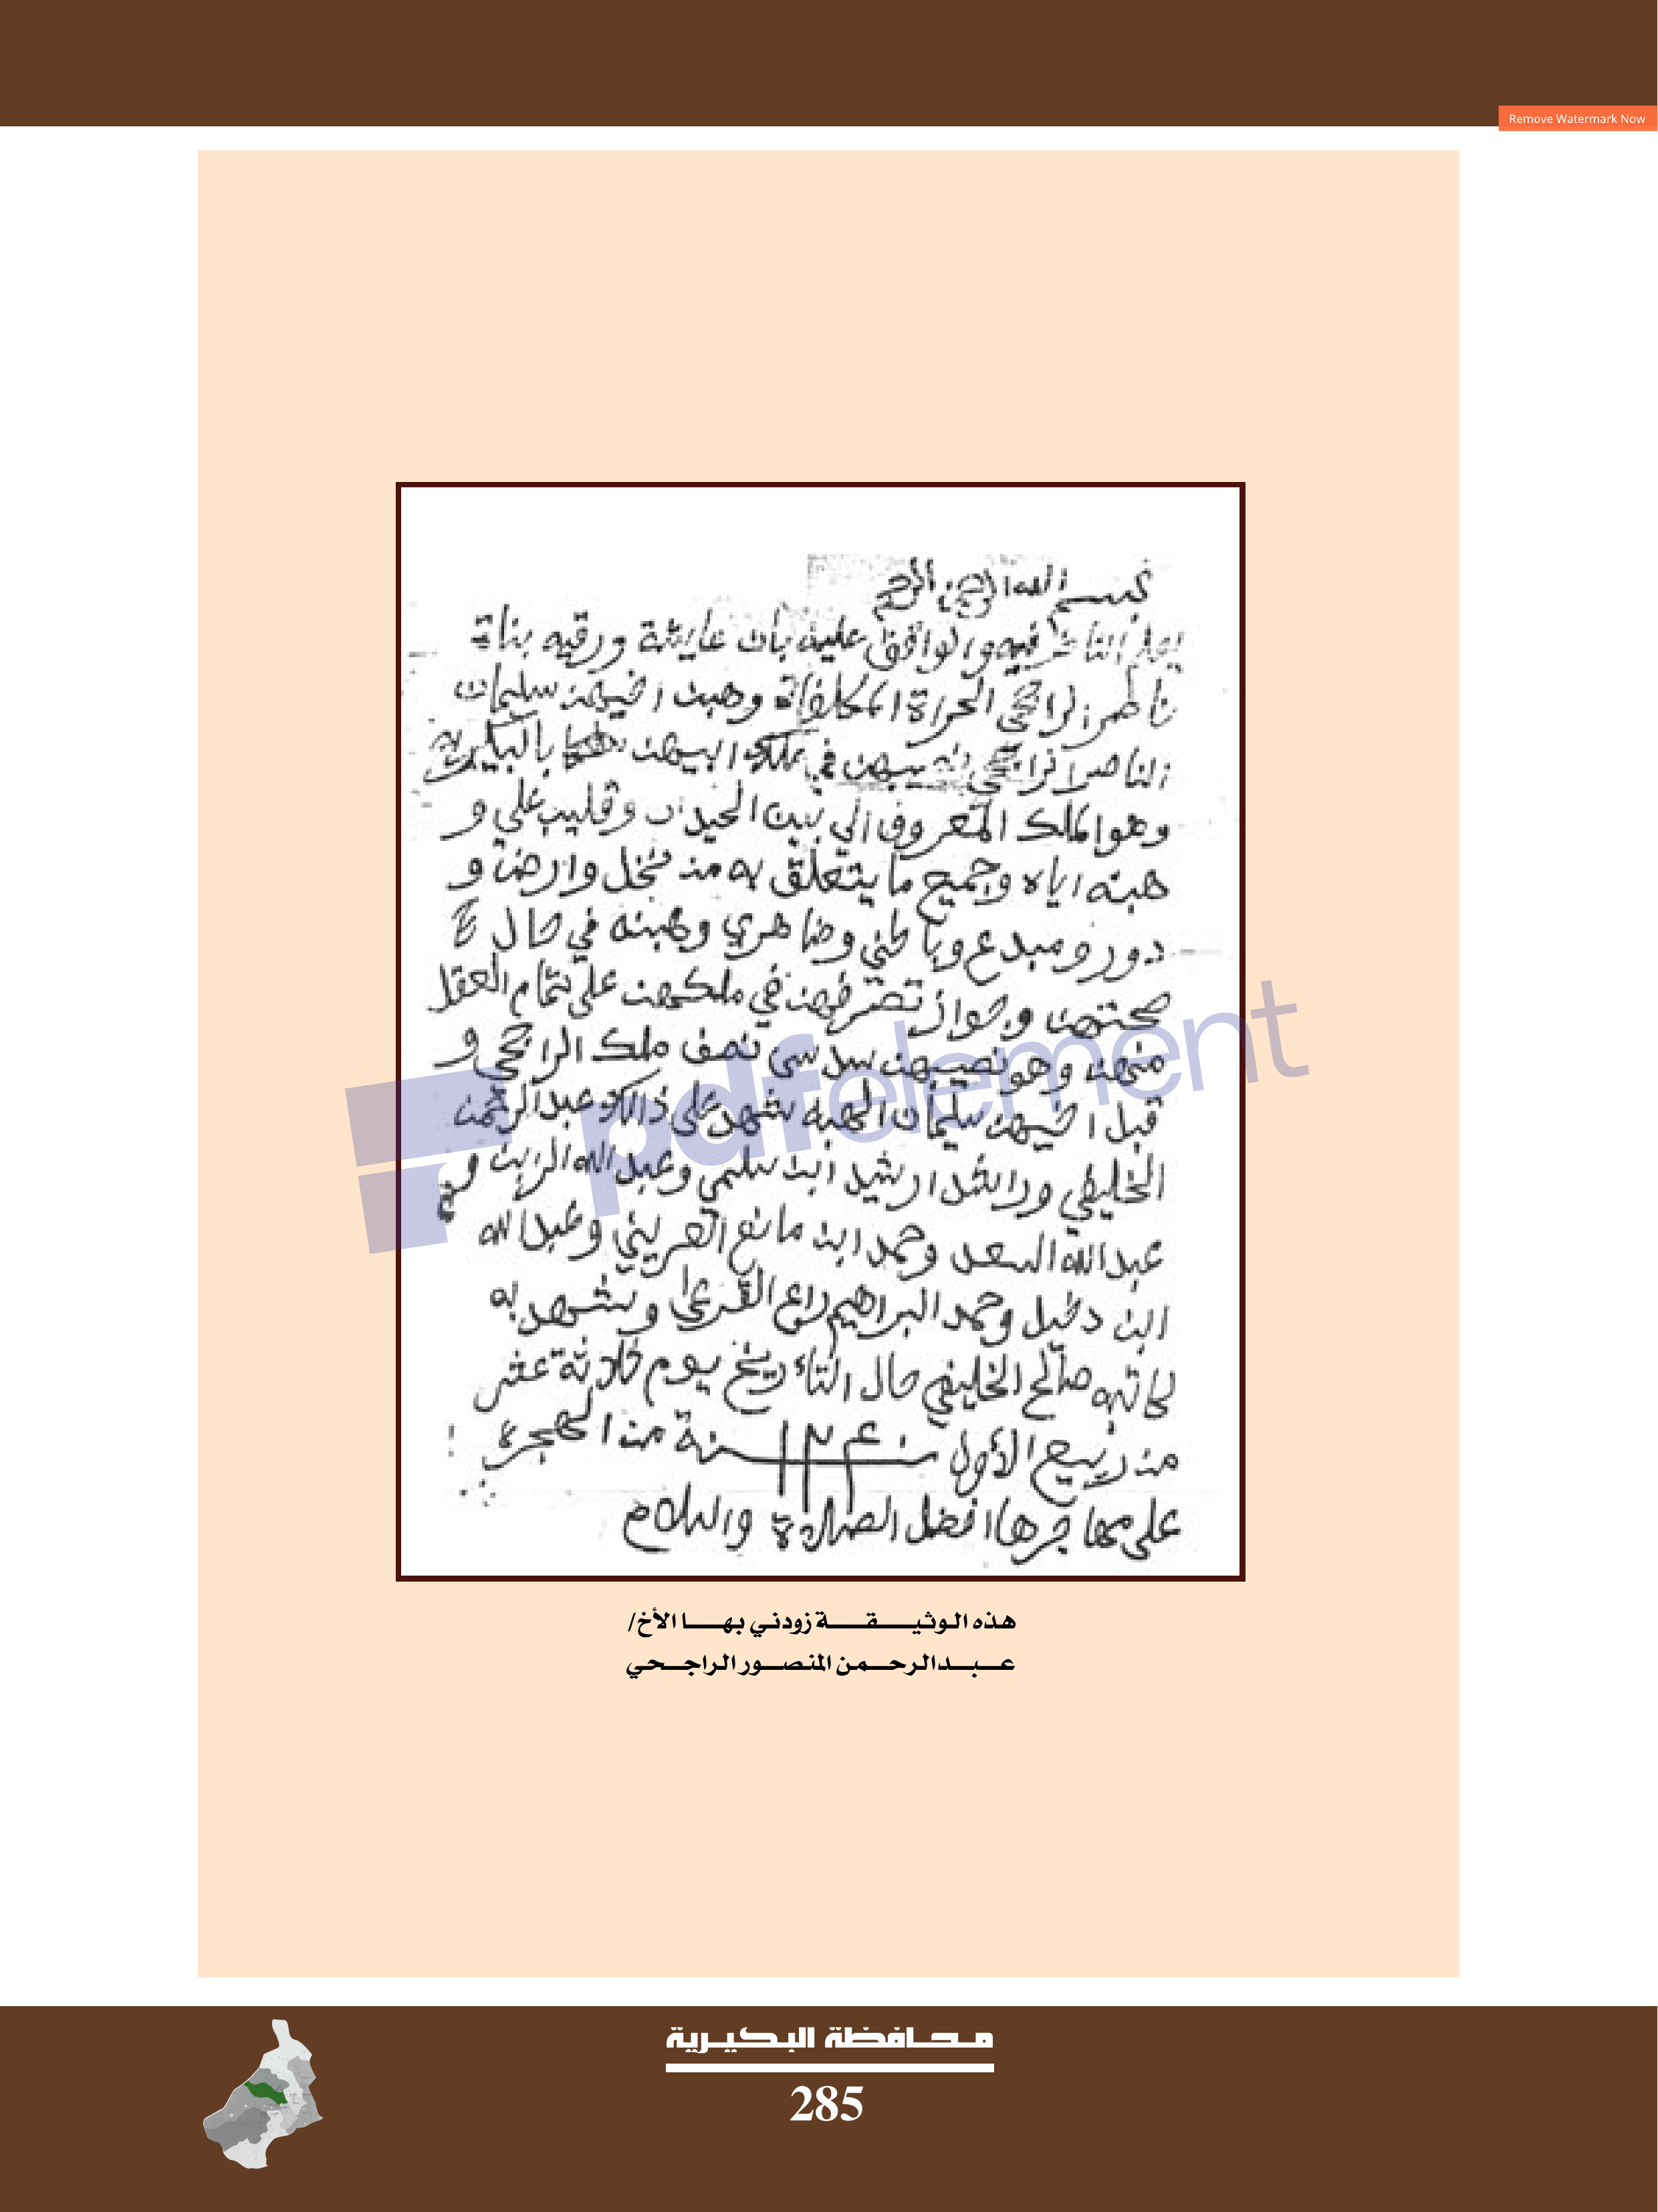 Remove Watermark Now
بسم الله الرحمن الرحيم
يعلم الناظر فيه والواقف عليه بأن عايشة ورقيه بناة
ناصر الراجحي الحرارة المكلفات وهبن اخيهن سليمان
الناصر الراجحي نصيبهن في ملك ابيهن بالبكيريه
وهو الملك المعروف الي بين الحيدان وقليب علي و
هبنه اياه وجميع ما يتعلق به من نخل وارض و
دور ومبدع وباطني وضاهري وهبنه في حال
صحتهن وجواز تصرفهن في ملكهن على تمام العقل
منهن وهو نصيبهن سدسي نصف ملك الراجحي و
قبل اخيهن سليمان الهبه شهد على ذالك عبدالرحمن
الخليفي وراشد ارشيد ابن سليمي وعبدالله
عبدالله السعد وحمد ابن مانع العريني وعبدالله
ابن دخيل وحمد البراهيم راع القرعا وشهد به
كاتبه صالح الخليفي حال التاءريخ يوم ثلاثة عشر
من ربيع الأول سنة من الهجرة
على مهاجرها افضل الصلاة والسلام
pdfelement
هذه الوثيقة زودني بها الأخ/
عبدالرحمن المنصور الراجحي
محافظة البكيرية
285